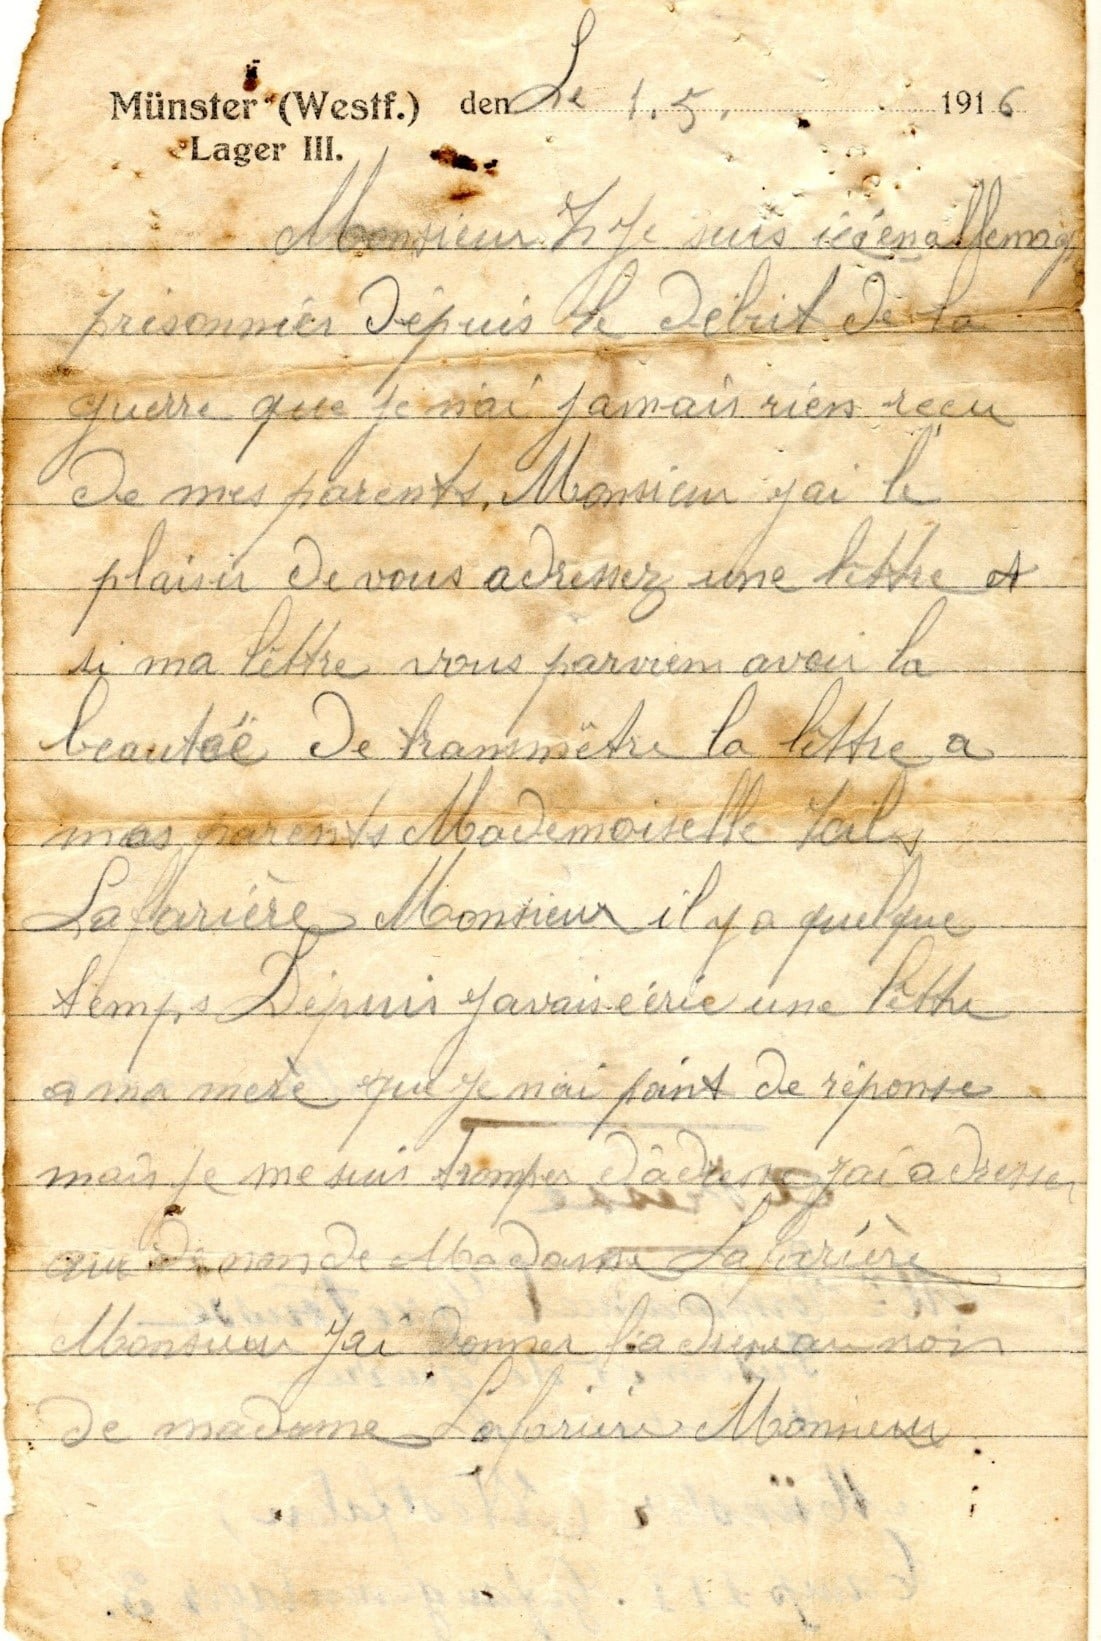 Münster (Westf.) den Le 1.5. 1916
Lager III.
Monsieur Je suis ici en allemag
prisonniér Dépuis le debut de la
guerre que je n'ai jamais rien recu
De mes parents, Monsieur j'ai le
plaisir De vous adressez une lettre et
si ma lettre vous parvien avoir la
beautéë De transmêtre la lettre a
mes parents Mademoiselle
Lafarière Monsieur il y a quelque
temps Dépuis javais écrie une lettre
a ma mère que je n'ai point De réponse
mais je me suis tromper d'adresse j'ai adresser
au nom de Madame Lafarière
Monsieur j'ai donner l'adresse au nom
De madame Lafarière Monsieur